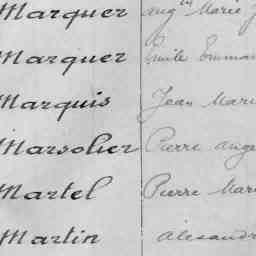 Marquer Aug^in Marie J
Marquer Emile Emman
Marquis Jean Mari
Marsolier Pierre Ange
Martel Pierre Mari
Martin Alexandr